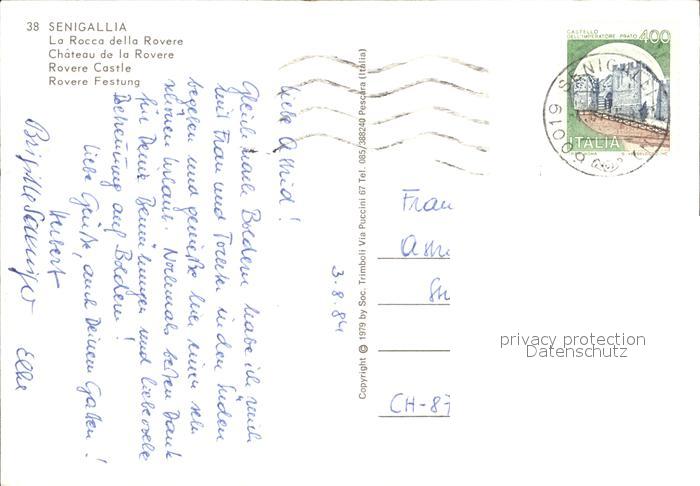 38 SENIGALLIA
La Rocca della Rovere
Château de la Rovere
Rovere Castle
Rovere Festung
CASTELLO
DELL'IMPERATORE PRATO 400
ITALIA
60019 SENIGALLIA
Copyright © 1979 by Soc. Trimboli Via Puccini 67 Tel. 085/388240 Pescara (Italia)
3.8.84
Liebe Astrid!
Gleich nach Boldern habe ich mich
mit Frau und Tochter in den Süden
begeben und geniesse hier einen sehr
schönen Urlaub. Nochmals besten Dank
für Deine Bemühungen und liebevolle
Betreuung auf Boldern!
Liebe Grüsse, auch Deinem Gatten!
Herbert
Brigitte
Elke
Frau
CH-87
privacy protection
Datenschutz